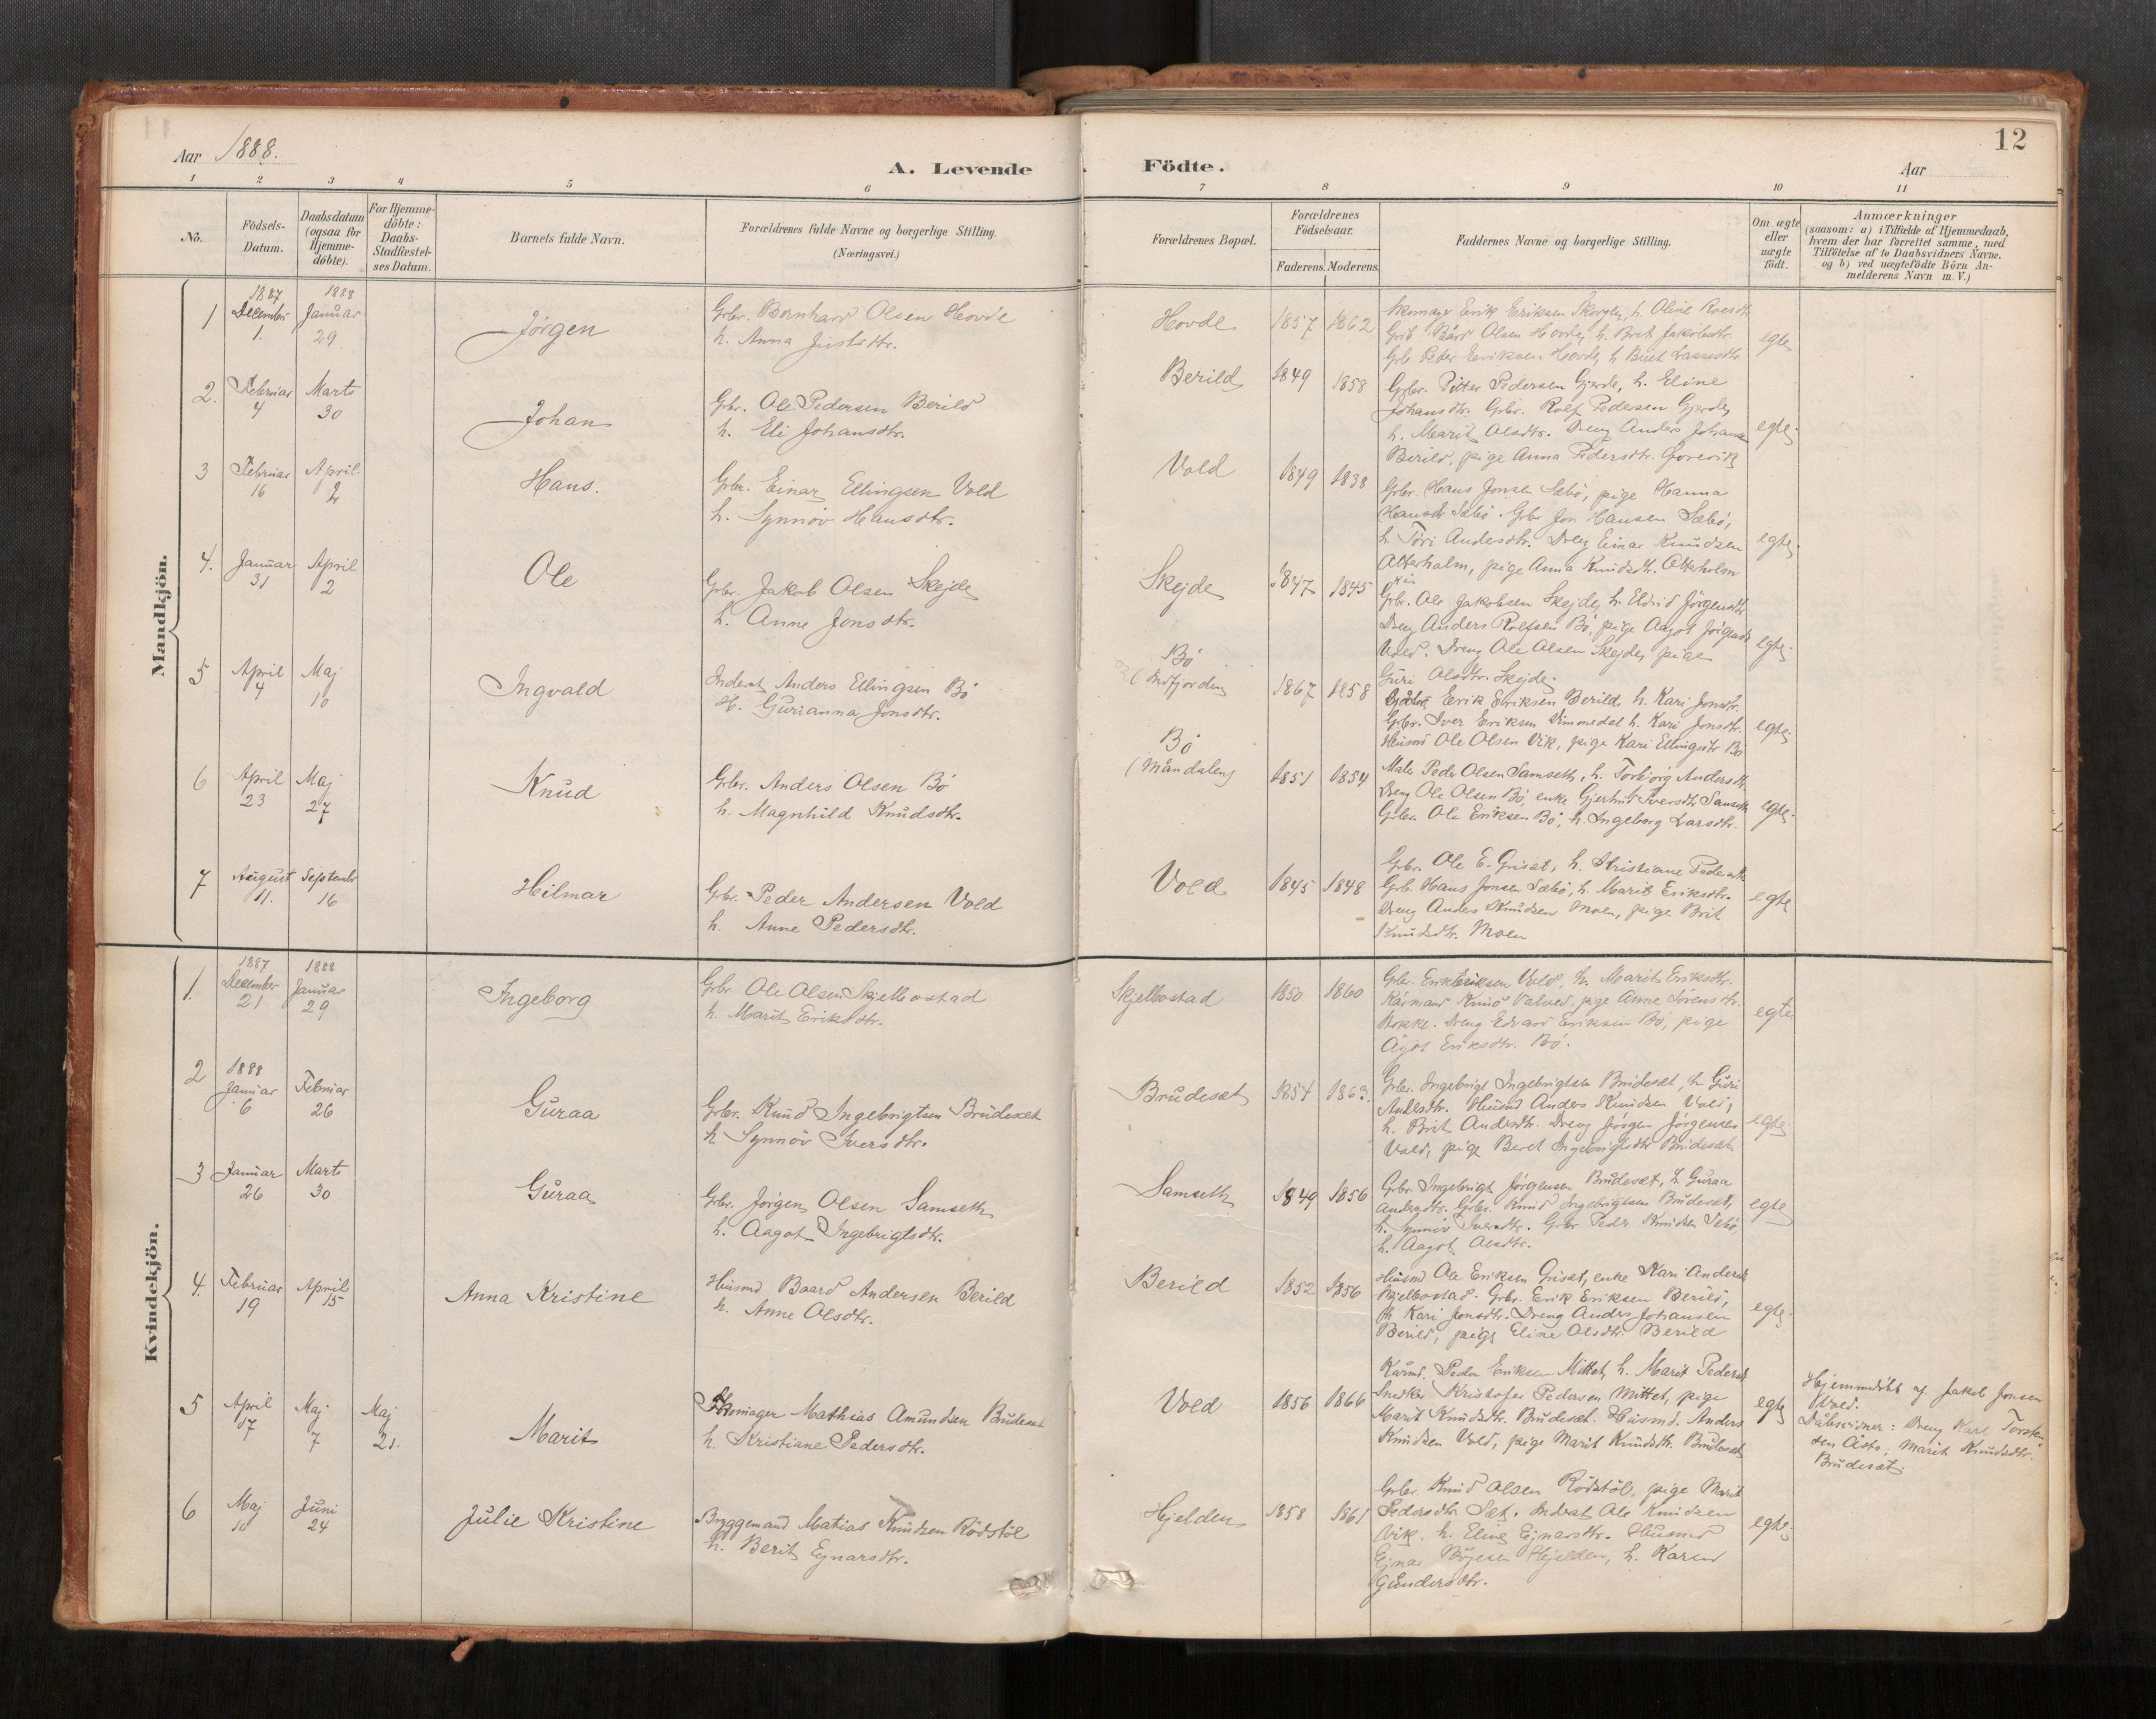 12
Aar 1888.
A. Levende Födte.
Aar
1 2 3 4 5 6 7 8 9 10 11
No.
Födsels-
Datum.
Daabsdatum
(ogsaa for
Hjemme-
döbte).
For Hjemme-
döbte:
Daabs-
Stadfæstel-
ses Datum.
Barnets fulde Navn.
Forældrenes fulde Navne og borgerlige Stilling.
(Næringsvei.)
Forældrenes Bopæl.
Forældrenes
Födselsaar.
Faderens. Moderens.
Faddernes Navne og borgerlige Stilling.
Om ægte
eller
uægte
født.
Anmærkninger
(saasom: a) i Tilfælde af Hjemmedaab,
hvem der har forrettet samme, med
Tilföielse af to Daabsvidners Navne.
og b) ved uægtefödte Börn An-
melderens Navn m.V.)
Mandkjön.
1
1887
December
1.
1888
Januar
29
Jörgen
Grbr. Bernhard Olsen Hovde
h. Anna Justsdtr.
Hovde
1857 1862
Skomager Erik Eriksen Skorgen, h. Oline
Grb Bård Olsen Hovde, h. Brit Jakobsdtr.
Grb Peder Eriksen Hovde, h Beret Lassesdtr
egte
2.
Februar
4
Marts
30
Johan
Grbr. Ole Pedersen Berild
h. Eli Johansdtr.
Berild
1849 1858
Grbr. Petter Pedersen Gjerde, h. Eline
Johansdtr. Grbr. Rolf Pedersen Gjerde,
h. Marit Olsdtr. Dreng Anders Johansen
Berild, pige Anna Pedersdtr.
egte
3
Februar
16
April
2
Hans.
Grbr. Einar Ellingsen Vold
h. Synnöv Hansdtr.
Vold
1849 1838
Grbr. Hans Jonsen Sæbö, pige Hanna
Hansdtr Sæbö. Grbr Jon Hansen Sæbö,
h. Töri Andersdtr. Dreng Einar Knudsen
Otterholm, pige Anna Knudsdtr. Otterholm
egte
4.
Januar
31
April
2
Ole
Grbr. Jakob Olsen Skejde
h. Anne Jonsdtr.
Skejde
1847 1845
Grbr. Ole Jakobsen Skejde, h. Eldrid Jörgensdtr
Dreng Anders Rolfsen Bö, pige Aagot Jörgensdtr
Vold. Dreng Ole Olsen Skejde, pige
Guri Olsdtr. Skejde.
egte
5
April
4
Maj
10
Ingvald
Inderst Anders Ellingsen Bö
H. Gurianna Jonsdtr.
Bö
Indfjorden
1867 1858
Erik Eriksen Berild, h. Kari Jonsdtr.
Grbr. Iver Eriksen Dimmedal h. Kari Jonsdtr.
Husmd Ole Olsen Vik, pige Kari Ellingsdtr Bö
egte
6
April
23
Maj
27
Knud
Grbr. Anders Olsen Bö
h. Magnhild Knudsdtr.
Bö
(Måndalen)
1851 1854
Maler Peder Olsen Samseth, h. Torbjörg Andersdtr.
Dreng Ole Olsen Bö, enke Gjertrud Iversdtr Samseth
Grbr. Ole Eriksen Bö, h. Ingeborg Larsdtr.
egte
7
August
11.
September
16
Hilmar
Grbr. Peder Andersen Vold
h. Anne Pedersdtr.
Vold
1845 1848
Grbr. Ole E. Griset, h. Kristiane Pedersdtr
Grb Hans Jonsen Sæbö, h. Marit Eriksdtr.
Dreng Anders Knudsen Moen, pige Brit
Knudsdtr. Moen
egte
Kvindekjön.
1.
1887
December
21
1888
Januar
29
Ingeborg
Grbr Ole Olsen Skjelbostad
h. Marit Eriksdtr.
Skjelbostad
1850 1860
Grbr. Erik Eriksen Vold, h. Marit Eriksdtr.
Kårmand Knud Valved, pige Anne Sörensdtr.
Stokke. Dreng Edvard Eriksen Bö, pige
Ågot Eriksdtr. Bö.
egte
2
1888
Januar
6
Februar
26
Guraa
Grbr. Knud Ingebrigtsen Brudeset
h Synnöv Iversdtr.
Brudeset
1854 1863.
Grbr. Ingebrigt Ingebrigtsen Brudeset, h Guri
Andersdtr. Husmd Anders Knudsen Vold,
h. Brit Andersdtr. Dreng Jörgen Jörgensen
Vold, pige Beret Ingebrigtsdtr Brudeset
egte
3
Januar
26
Marts
30
Guraa
Grbr. Jörgen Olsen Samseth
h. Aagot Ingebrigtsdtr.
Samseth
1849 1856
Grbr. Ingebrigt Jörgensen Brudeset, h. Guraa
Andersdtr. Grbr. Knud Ingebrigtsen Brudeset,
h. Synnöv Iversdtr. Grbr Peder Knudsen Sæbö,
h. Aagot Olsdtr.
egte
4.
Februar
19
April
15
Anna Kristine
Husmd Baard Andersen Berild
h. Anne Olsdtr.
Berild
1852 1856
Husmd Ole Eriksen Griset, enke Kari Andersdtr
Skjelbostad. Grbr. Erik Eriksen Berild,
h Kari Jonsdtr. Dreng Anders Johansen
Berild, pige Eline Olsdtr. Berild
egte
5
April
17
Maj
7
Maj
21.
Marit
Skomager Mathias Amundsen Brudeset
h. Kristiane Pedersdtr.
Vold
1856 1866
Kårmd. Peder Eriksen Mittet, h. Marit Pedersdtr
Snedker Kristofer Pedersen Mittet, pige
Marit Knudsdtr. Brudeset. Husmd. Anders
Knudsen Vold, pige Marit Knudsdtr. Brudeset
egte
Hjemmedöbt af Jakob Jonsen
Vold.
Dåbsvidner: Dreng Karl Torsten-
sen Aste, Marit Knudsdtr.
Brudeset
6
Maj
10
Juni
24
Julie Kristine
Bryggemand Matias Knudsen Rödstöl
h. Berit Ejnarsdtr.
Hjelden
1858 1861
Grbr. Knud Olsen Rödstöl, pige Marit
Pedersdtr. Sæt. Inderst Ole Knudsen
Vik. h. Eline Ejnarsdtr. Husmd
Ejnar Böjesen Hjelden, h. Karen
Gundersdtr.
egte